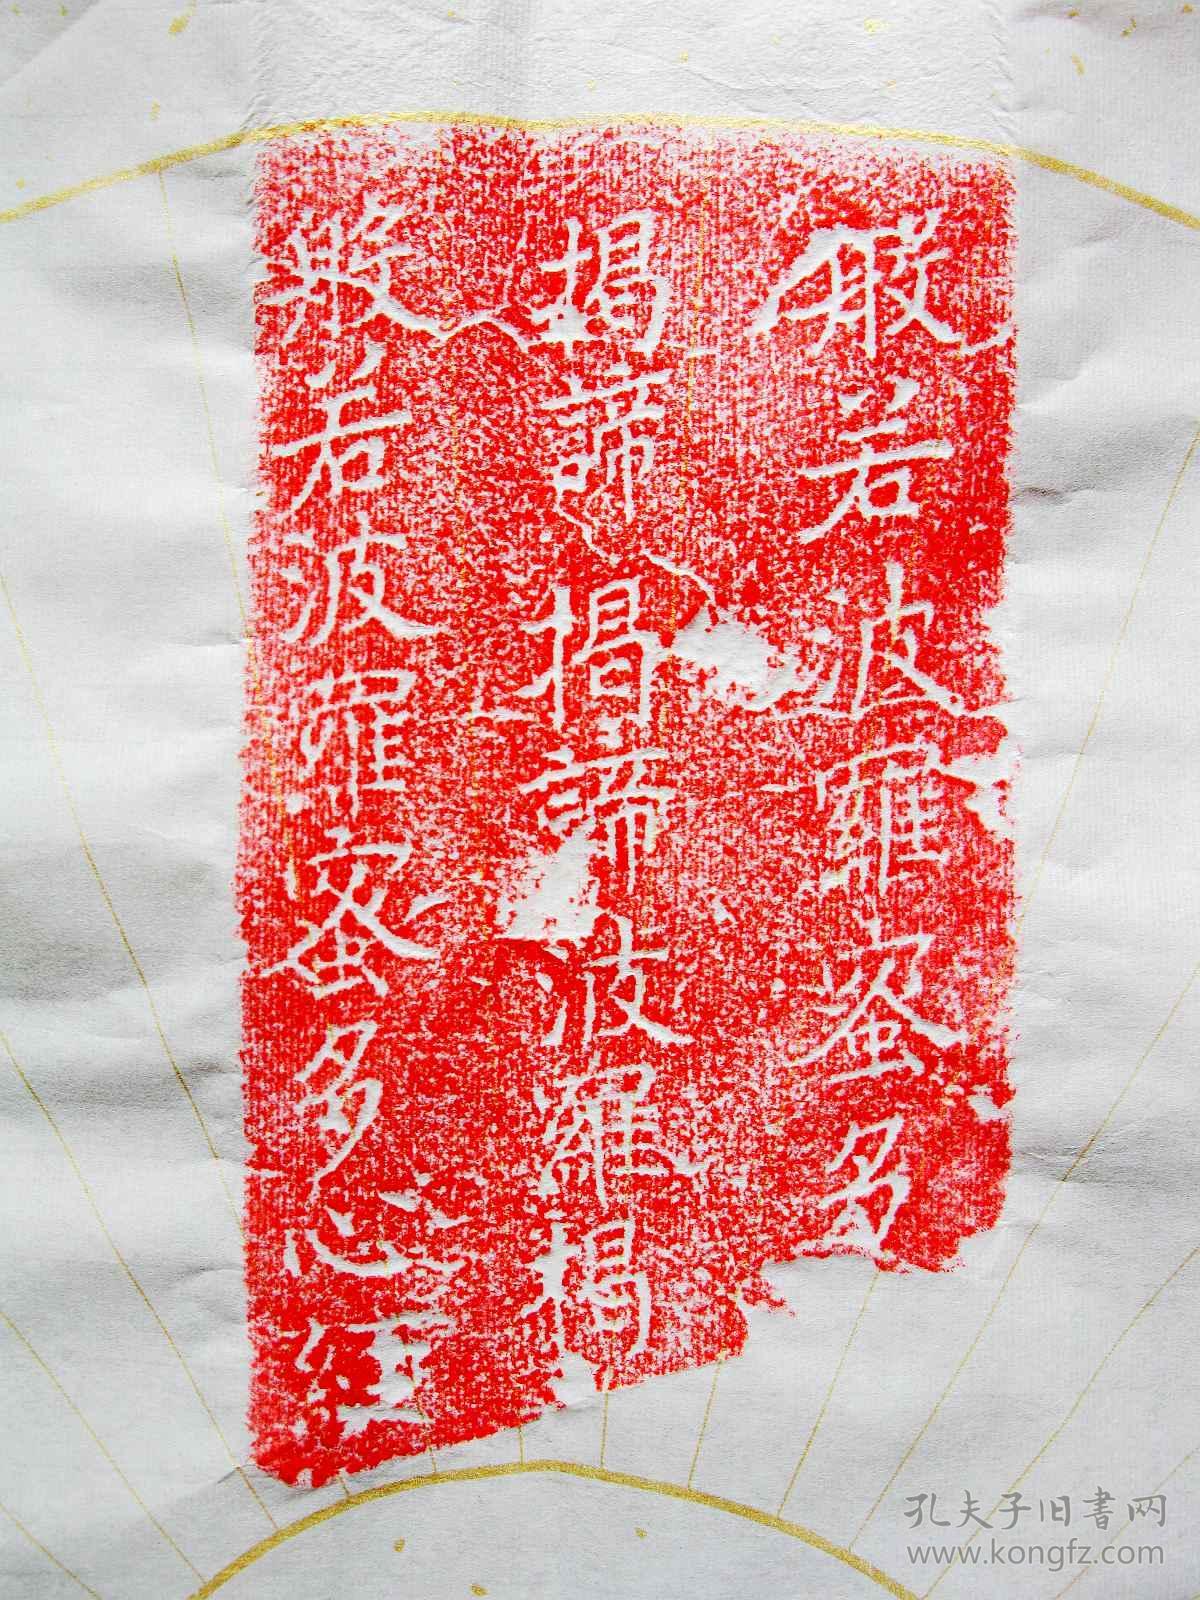 般若波羅蜜多
揭諦揭諦波羅揭
般若波羅蜜多心經
孔夫子旧書网
www.kongfz.com